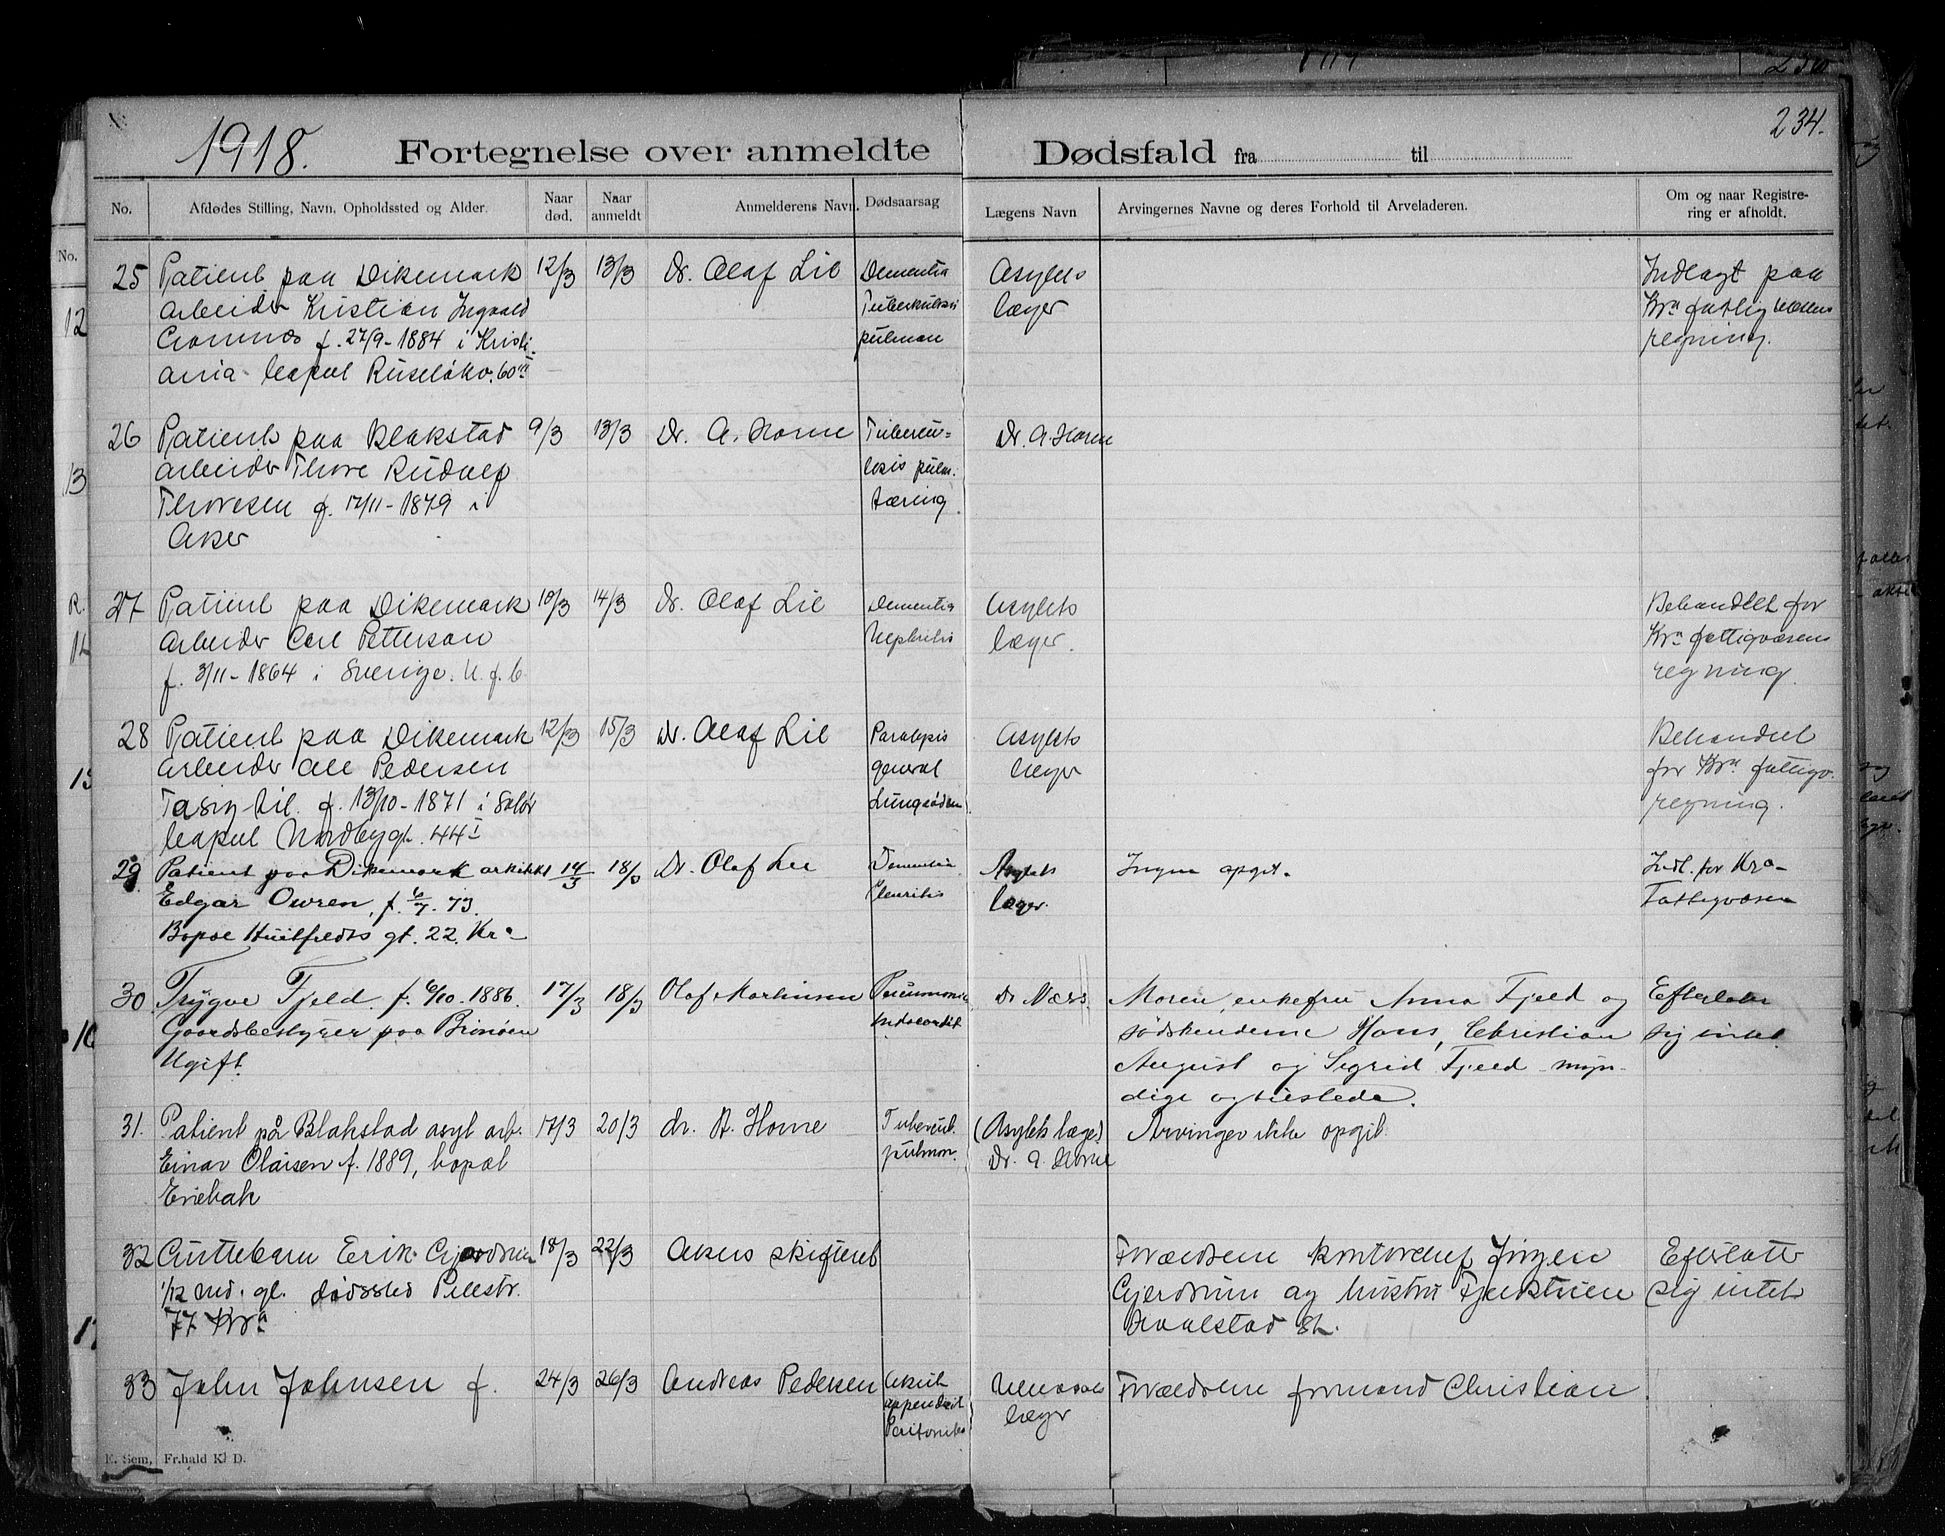 1918.
Fortegnelse over anmeldte Dødsfald fra til
234.
No.
Afdødes Stilling, Navn, Opholdssted og Alder.
Naar død.
Naar anmeldt
Anmelderens Navn.
Dødsaarsag
Lægens Navn
Arvingernes Navne og deres Forhold til Arveladeren.
Om og naar Registre-
ring er afholdt.
25 Patient paa Dikemark 12/3 13/3 Dr. Olaf Lie Dementia Asylets Indlagt paa
arbeider Kristian Ingvald Tuberkulosis læger Kra fattigvæsens
f. 27/9-1884 i Kristi- pulmon regning.
ania bopæl Ruseløkv. 60
26 Patient paa Blakstad 9/3 13/3 Dr. A. Horne Tubercu= Dr. A. Horne
arbeider Thore Rudolf losis pulm.
Thoresen f. 17/11-1879 i tæring
Aker
27 Patient paa Dikemark 10/3 14/3 Dr. Olaf Lie Dementia Asylets Behandlet for
arbeider Carl Petterson Nephritis læger. Kra fattigvæsens
f. 3/11-1864 i Sverige. U. f. b. regning.
28 Patient paa Dikemark 12/3 15/3 Dr. Olaf Lie Paralysis Asylets Behandlet
arbeider Ole Pedersen general læger for Kra fattigv.
f. 13/10-1871 i Solør Lungeødem regning.
bopæl Nordbygt. 44 I
29 Patient paa Dikemark arkitekt 14/3 18/3 Dr. Olaf Lie Dementia Asylets Ingen opgit. Indl. for Kra
Edgar Owren, f. 6/7. 73. Pleuritis læger. Fattigvæsen
Bopæl Huitfeldts gt. 22. Kra
30 Trygve Fjeld. f. 6/10. 1886. 17/3 18/3 Olaf Martinsen Pneumonie Dr Næss. Moren, enkefru Anna Fjeld og Efterlater
Gaardsbestyrer paa Brønøen endocardit søskenderne Hans, Christian sig intet.
Ugift. August og Sigrid Fjeld myn-
dige og tilstede.
31. Patient på Blakstad asyl arb. 17/3 20/3 dr. A. Horne Tubercul. (Asylets læge) Arvinger ikke opgit.
Einar Olaisen f. 1889, bopæl pulmon. Dr. A. Horne
Enebak
32 Guttebarn Erik Gjerdrum 18/3 22/3 Akers skifteret Forældrene kontorchef Jörgen Efterlatt
1/12 md. gl. dødssted Pilestr. Gjerdrum og hustru sig intet
77 Kra Hvalstad St.
33 John Johnsen f. 24/3 26/3 Andreas Pedersen Akut læger Forældrene formand Christian
appendicit
Peritonitis
E. Sem, Fr.hald K D.
No.
12
13
R.
14
15
16
17